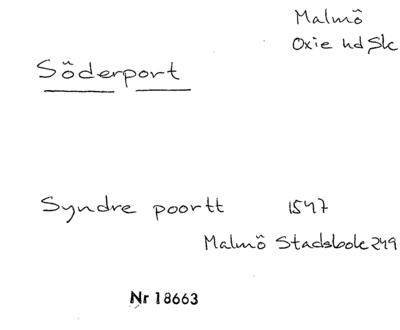 Malmö
Oxie hd Sk
Söderport
Syndre poortt 1547
Malmö Stadsbok 249
Nr 18663